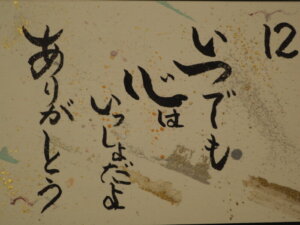 12
いつでも
心は
いっしょだよ
ありがとう